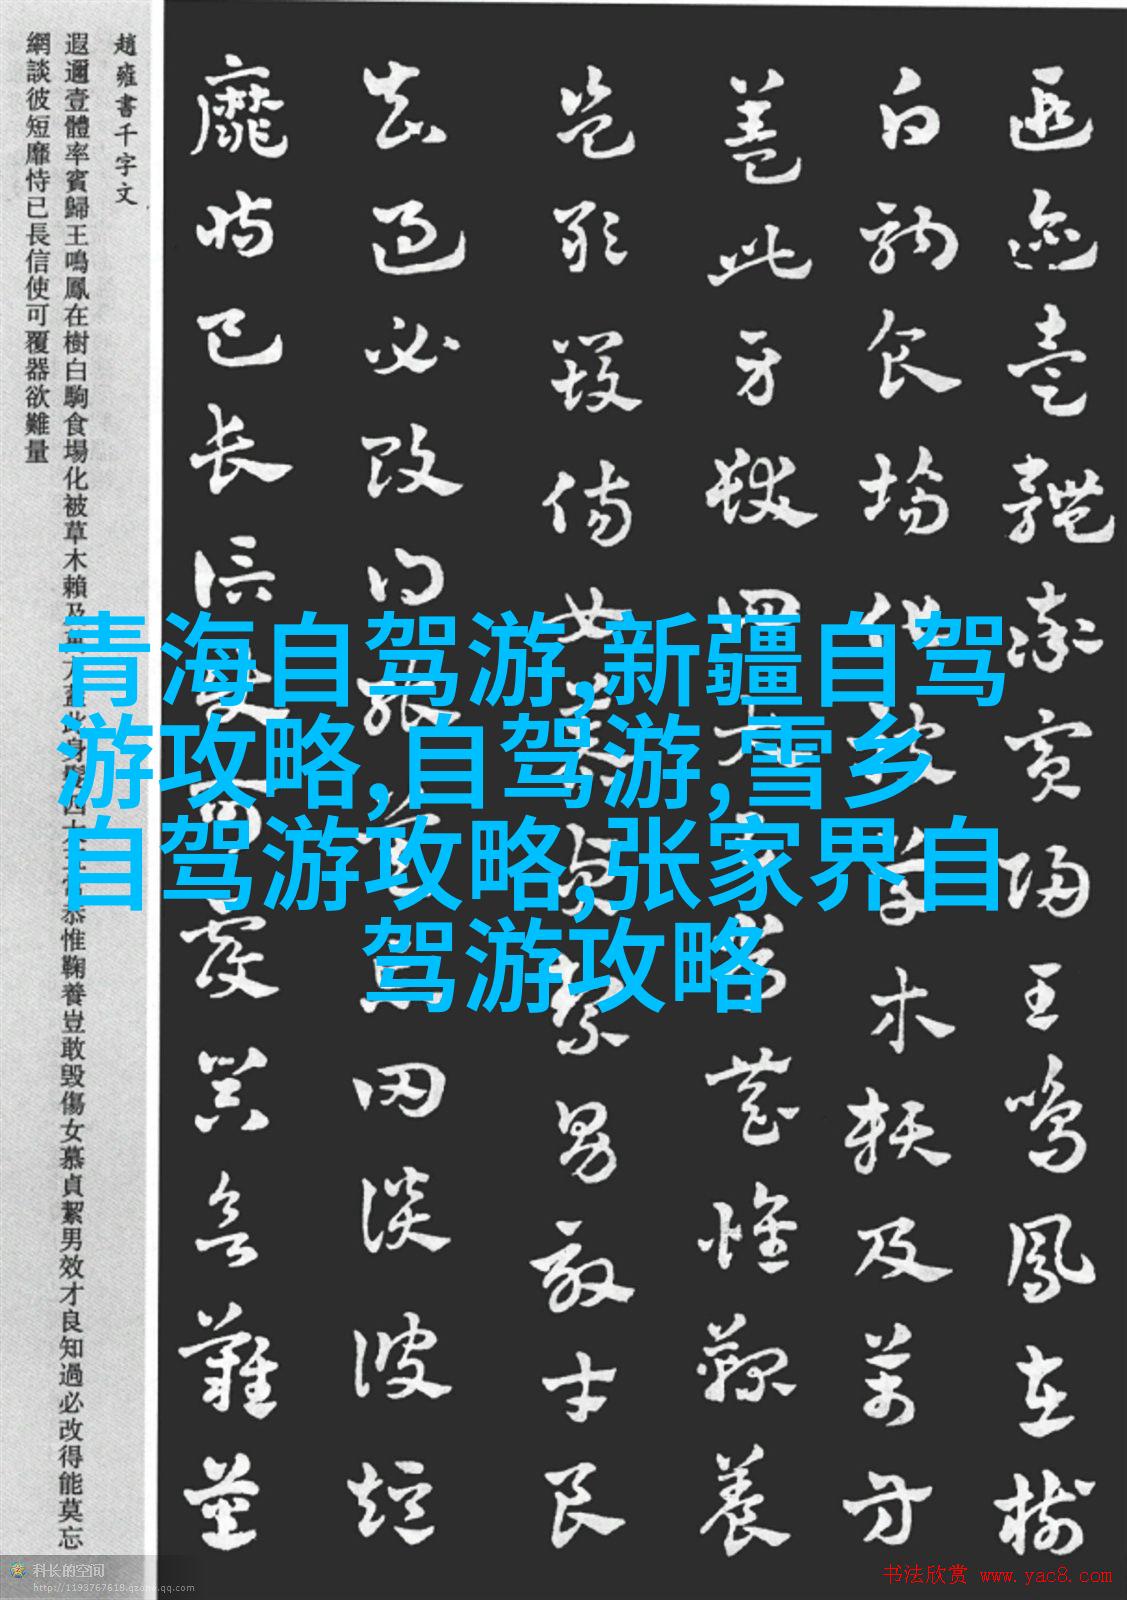 遐邇壹體率賓歸王鳴鳳在樹
白駒食場化被草木賴及萬方
蓋此身髮四大五常恭惟鞠養
豈敢毀傷女慕貞絜男效才良
知過必改得能莫忘罔談彼短
靡恃已長信使可覆器欲難量
趙雍書千字文
遐邇壹體率賓歸王鳴鳳在樹白駒食場化被草木賴及萬方蓋此身髮四大五常恭惟鞠養豈敢毀傷女慕貞絜男效才良知過必改得能莫忘
網談彼短靡恃已長信使可覆器欲難量
青海自驾游,新疆自驾
游攻略,自驾游,雪乡
自驾游攻略,张家界自
驾游攻略
科长的空间
http://1193767618.qzone.qq.com
书法欣赏 www.yac8.com